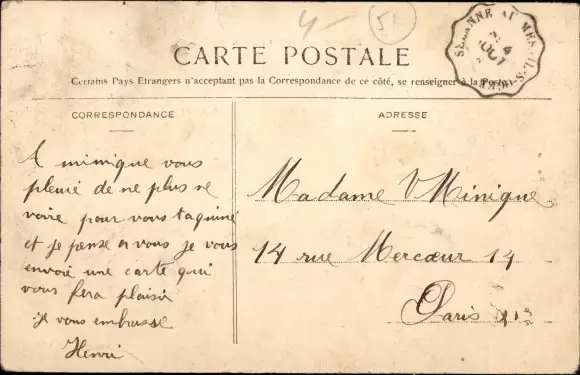 4-
51
SEZANNE AU MESNIL-S-
4
AOUT
CARTE POSTALE
Certains Pays Etrangers n'acceptent pas la Correspondance de ce côté, se renseigner à la Poste
CORRESPONDANCE
A mimique vous
pleurié de ne plus se
voire pour vous taquiné
et je pense a vous je vous
envoié une carte qui
vous fera plaisir
je vous embrasse
Henri
ADRESSE
Madame V Minique
14 rue Mercœur 14
Paris